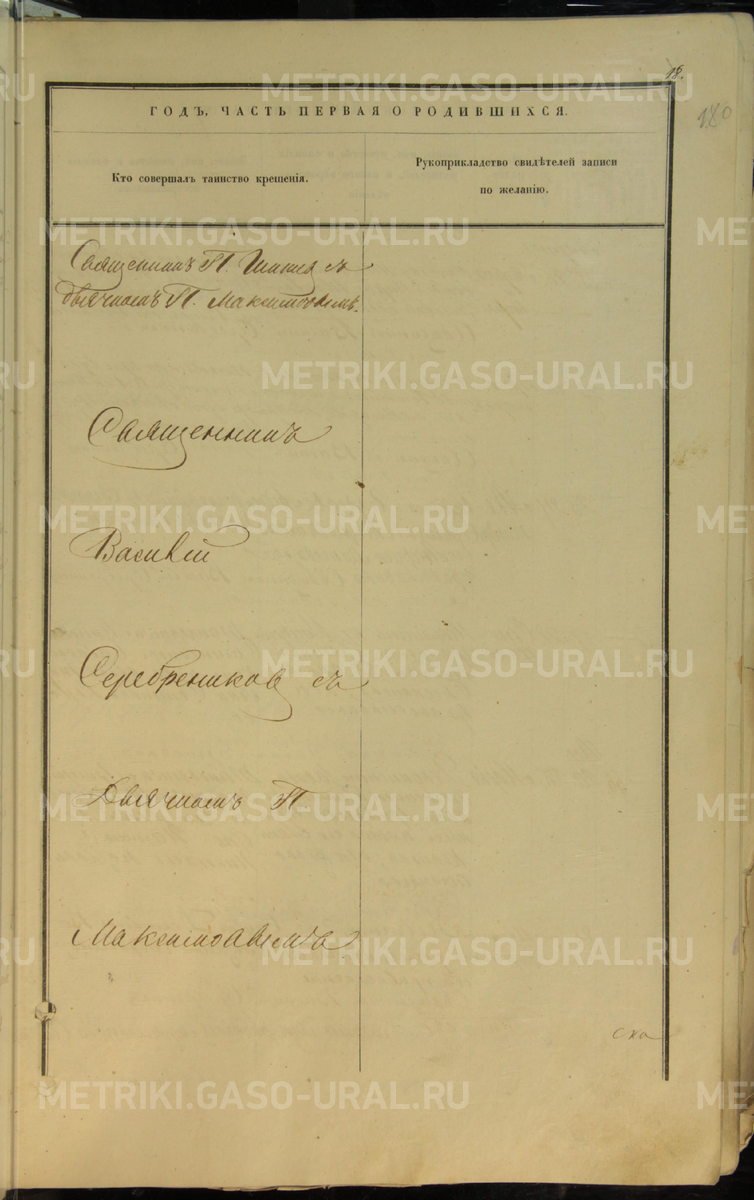 18.
180
ГОДЪ, ЧАСТЬ ПЕРВАЯ О РОДИВШИХСЯ.
Кто совершалъ таинство крещенія.
Рукоприкладство свидѣтелей записи
по желанію.
Священникъ П. съ
дьячкомъ П. Максимовымъ.
Священникъ
Василій
Серебрениковъ съ
Дьячкомъ П
Максимовымъ
METRIKI.GASO-URAL.RU